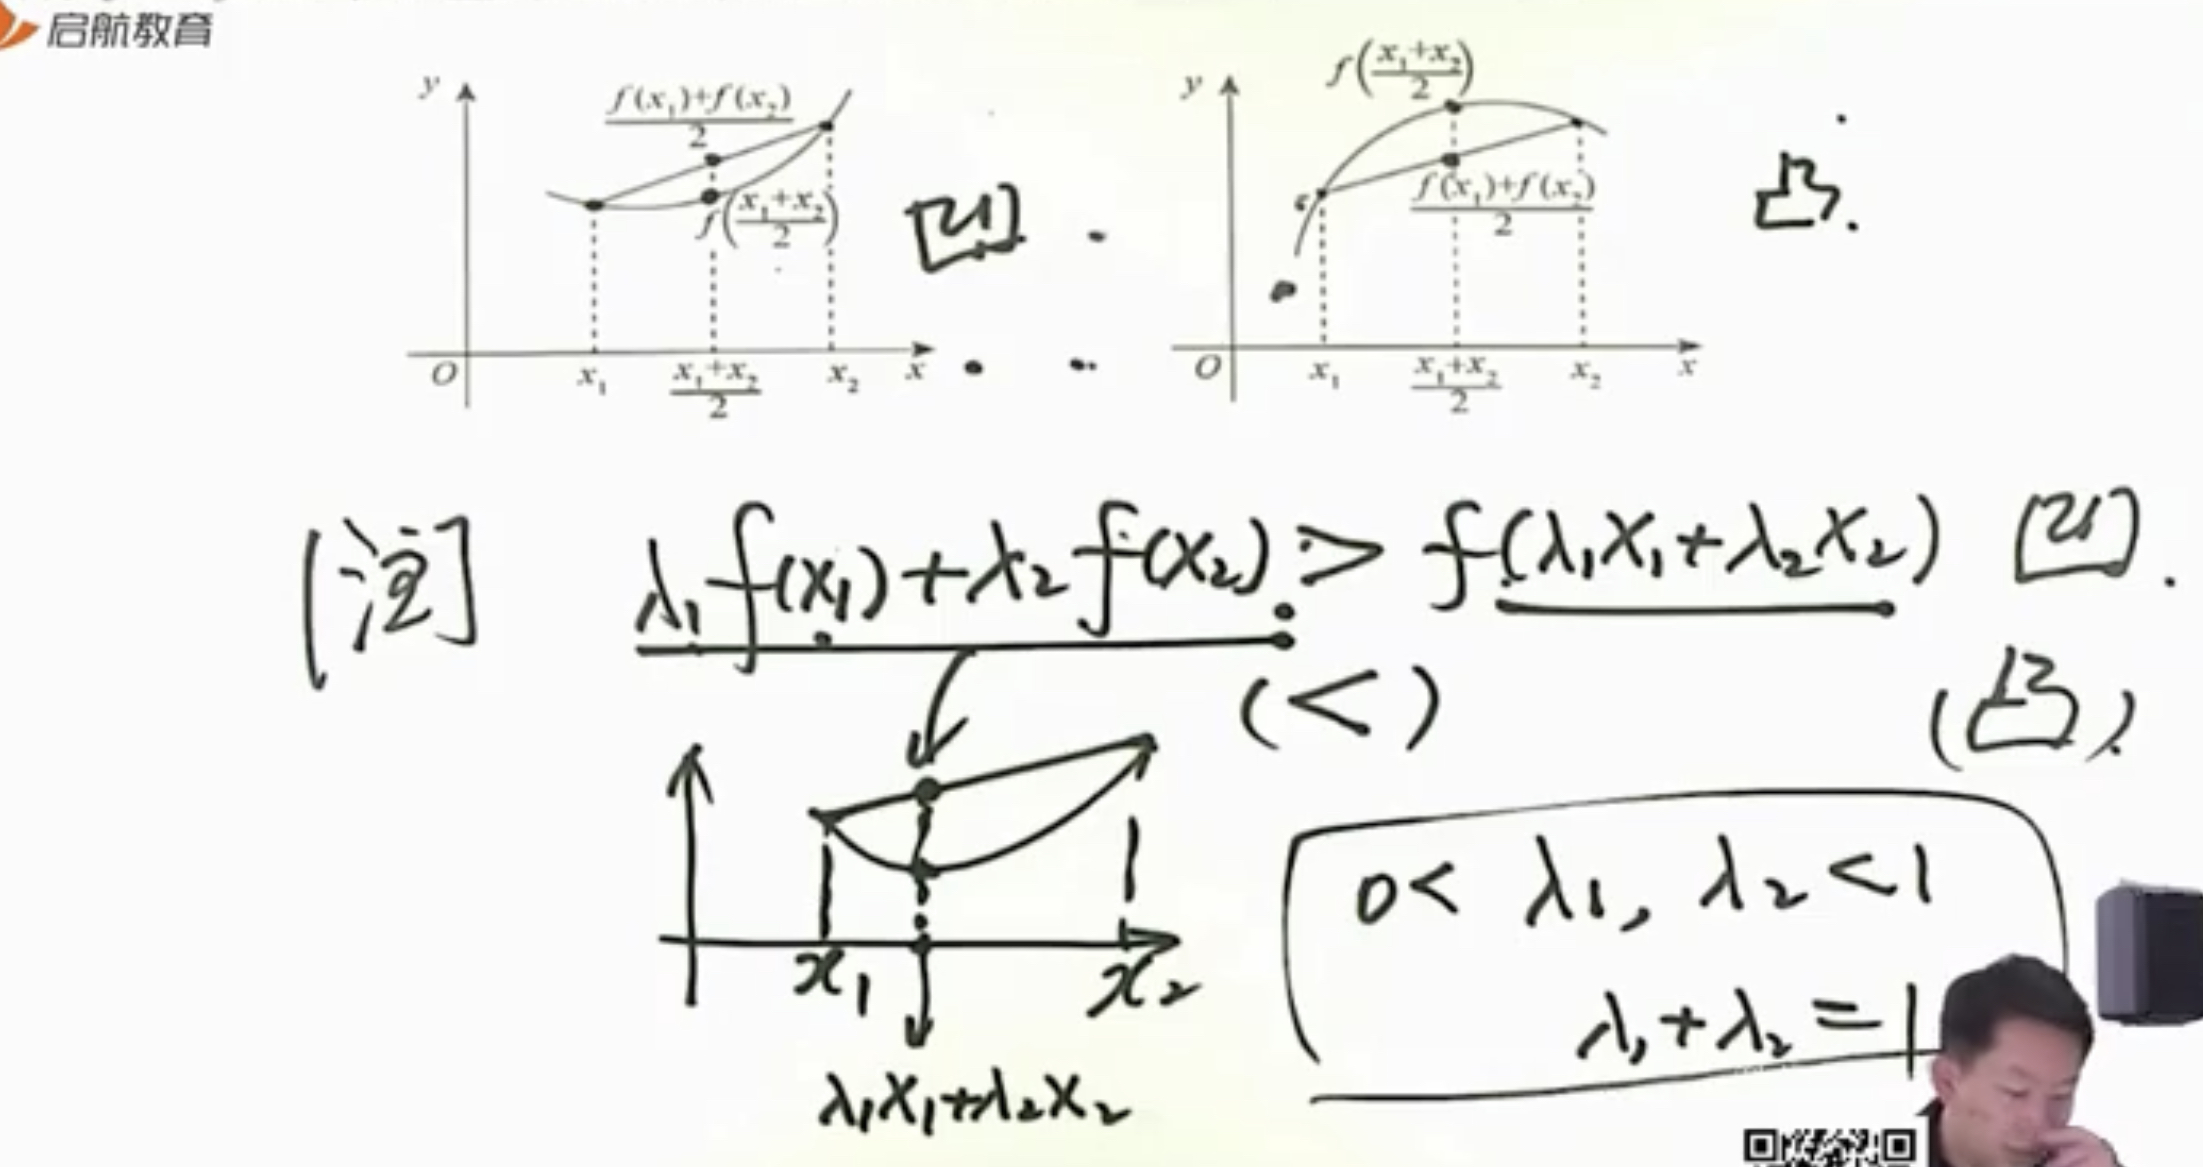 启航教育
y
f(x₁)+f(x₂)
2
f(x₁+x₂/2)
凹
O x₁ x₁+x₂/2 x₂ x
y
f(x₁+x₂/2)
f(x₁)+f(x₂)
2
凸.
O x₁ x₁+x₂/2 x₂ x
[注] λ₁f(x₁)+λ₂f(x₂) > f(λ₁x₁+λ₂x₂) 凹.
(<) (凸)
x₁ x₂
λ₁x₁+λ₂x₂
0< λ₁, λ₂ <1
λ₁+λ₂=1